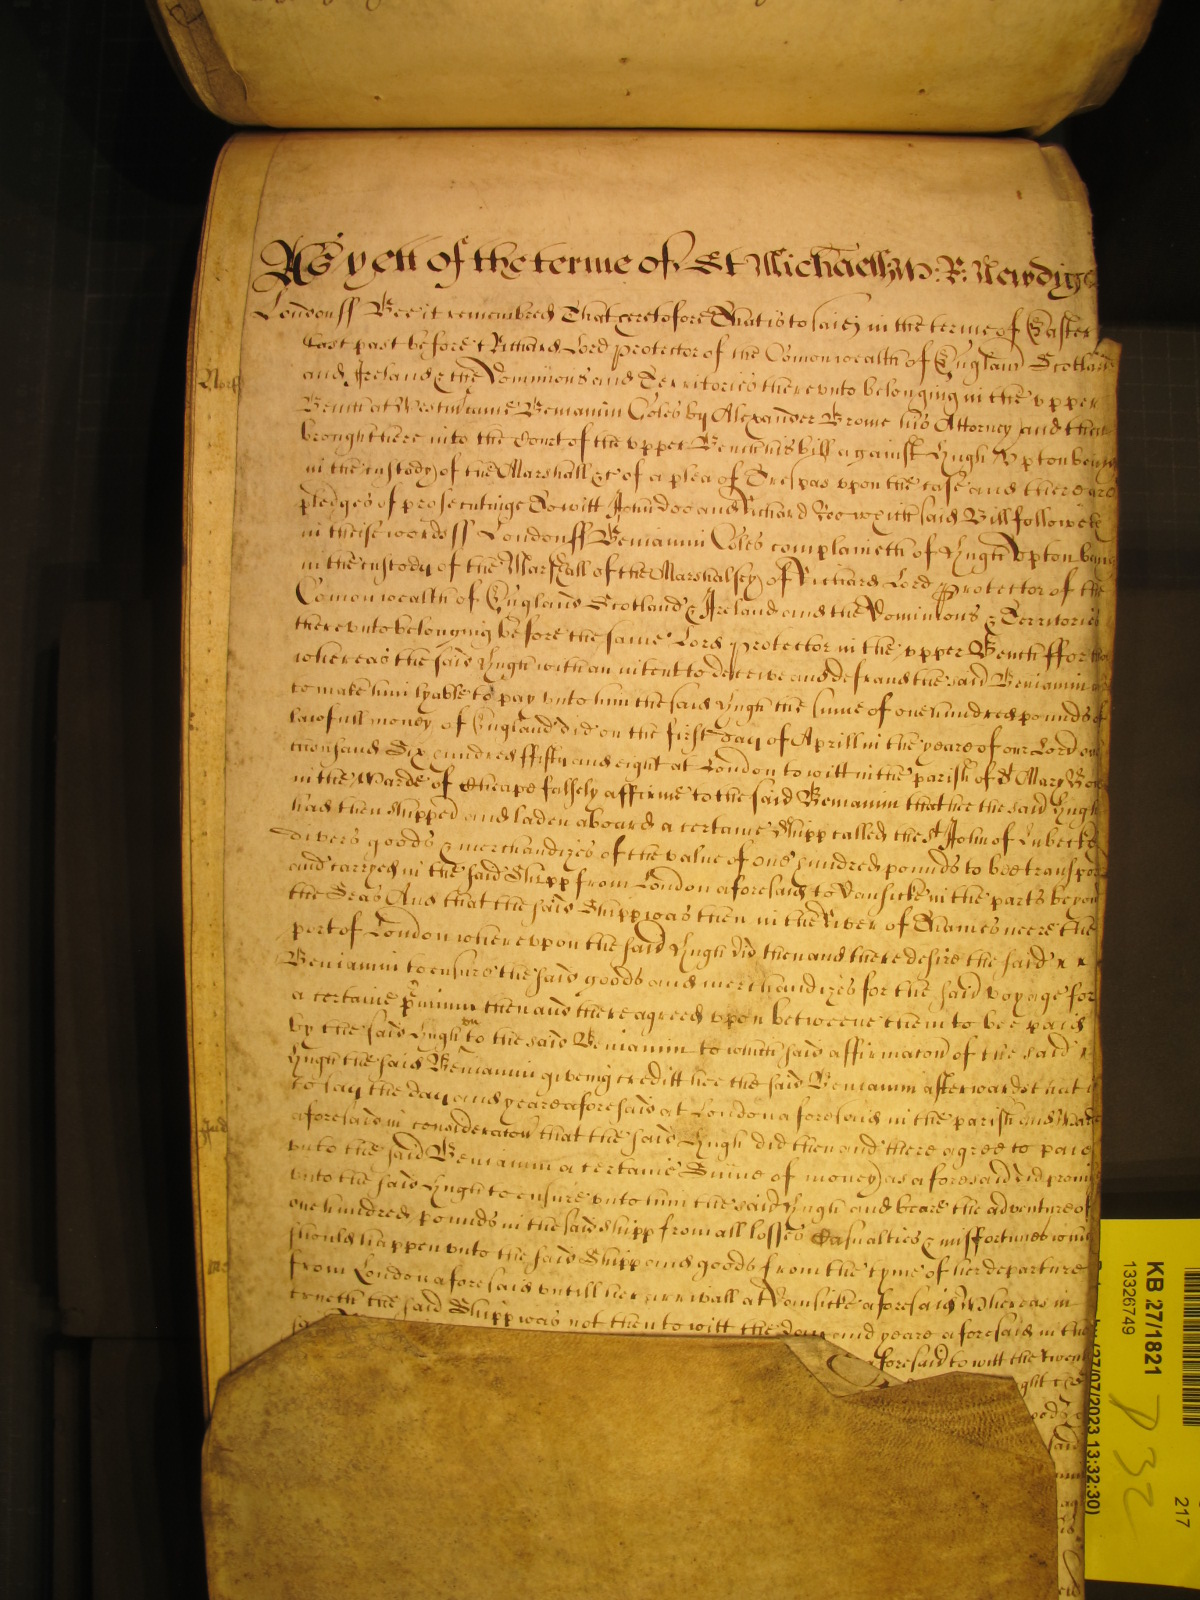 As yett of the terme of St Michaell W: R: Newdig
Londonss Bee it remembred That heretofore That is to saie in the terme of Easter
Last past before Richard Lord protector of the Comonwealth of England Scotland
and Ireland & the Dominions and Territories therevnto belonging in the vpper
Bench at Westm came Beniamin Coles by Alexander Brome his Attorney and then
brought here into the Court of the vpper Bench his bill against Hugh Vpton being
in the custody of the Marshall &c of a plea of Trespas vpon the case and there are
pledges of prosecutinge To witt John doe and Richard Roe which said Bill followeth
in theise wordes ss Londonss Beniamin Coles complaineth of Hugh Vpton being
in the custody of the Marshall of the Marshalsey of Richard Lord Protector of the
Comonwealth of England Scotland & Ireland and the Dominions & Territories
therevnto belonging before the same Lord protector in the vpper Bench ffor that
whereas the said Hugh with an intent to deceive and defraud the said Beniamin
to make him lyable to pay vnto him the said Hugh the sume of one hundred pounds of
lawfull money of England did on the first day of Aprill in the yeare of our Lord one
thousand Six hundred ffifty and eight at London to witt in the parish of St Mary Bow
in the Warde of Cheape falsely affirme to the said Beniamin that hee the said Hugh
had then shipped and laden aboard a certaine Shipp called the St John of Lubecke
divers goods & merchandizes of the value of one hundred pounds to bee transpor
and carryed in the said Shipp from London aforesaid to Dansicke in the parts beyond
the Seas And that the said Shipp was then in the River of Thames neere the
port of London wherevpon the said Hugh did then and there desire the said
Beniamin to ensure the said goods and merchandizes for the said voyage for
a certaine p'mium then and there agreed vpon betweene them to bee paid
by the said Hugh to the said Beniamin to which said affirmacon of the said
Hugh the said Beniamin giveing creditt hee the said Beniamin afterwards that is
to say the day and yeare aforesaid at London aforesaid in the parish and Warde
aforesaid in consideracon that the said Hugh did then and there agree to paie
vnto the said Beniamin a certaine Sume of money as aforesaid did promise
vnto the said Hugh to ensure vnto him the said Hugh and beare the adventure of
one hundred pounds in the said shipp from all losses Casualties & misfortunes which
should happen vnto the said Shipp and goods from the tyme of her departure
from London aforesaid vntill her arrivall at Dansicke aforesaid Whereas in
trueth the said Shipp was not then to witt the day and yeare aforesaid in the
foresaid to witt the twent
ght
KB 27/1821
13326749
(27/07/2023 13:32:30)
217
P 32